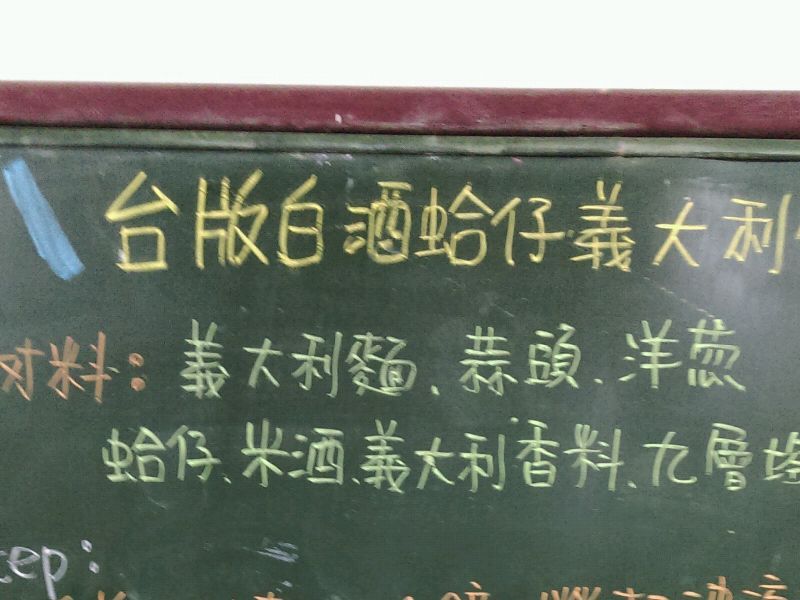 台版白酒蛤仔義大利
材料：義大利麵、蒜頭、洋蔥
蛤仔、米酒、義大利香料、九層塔
tep：